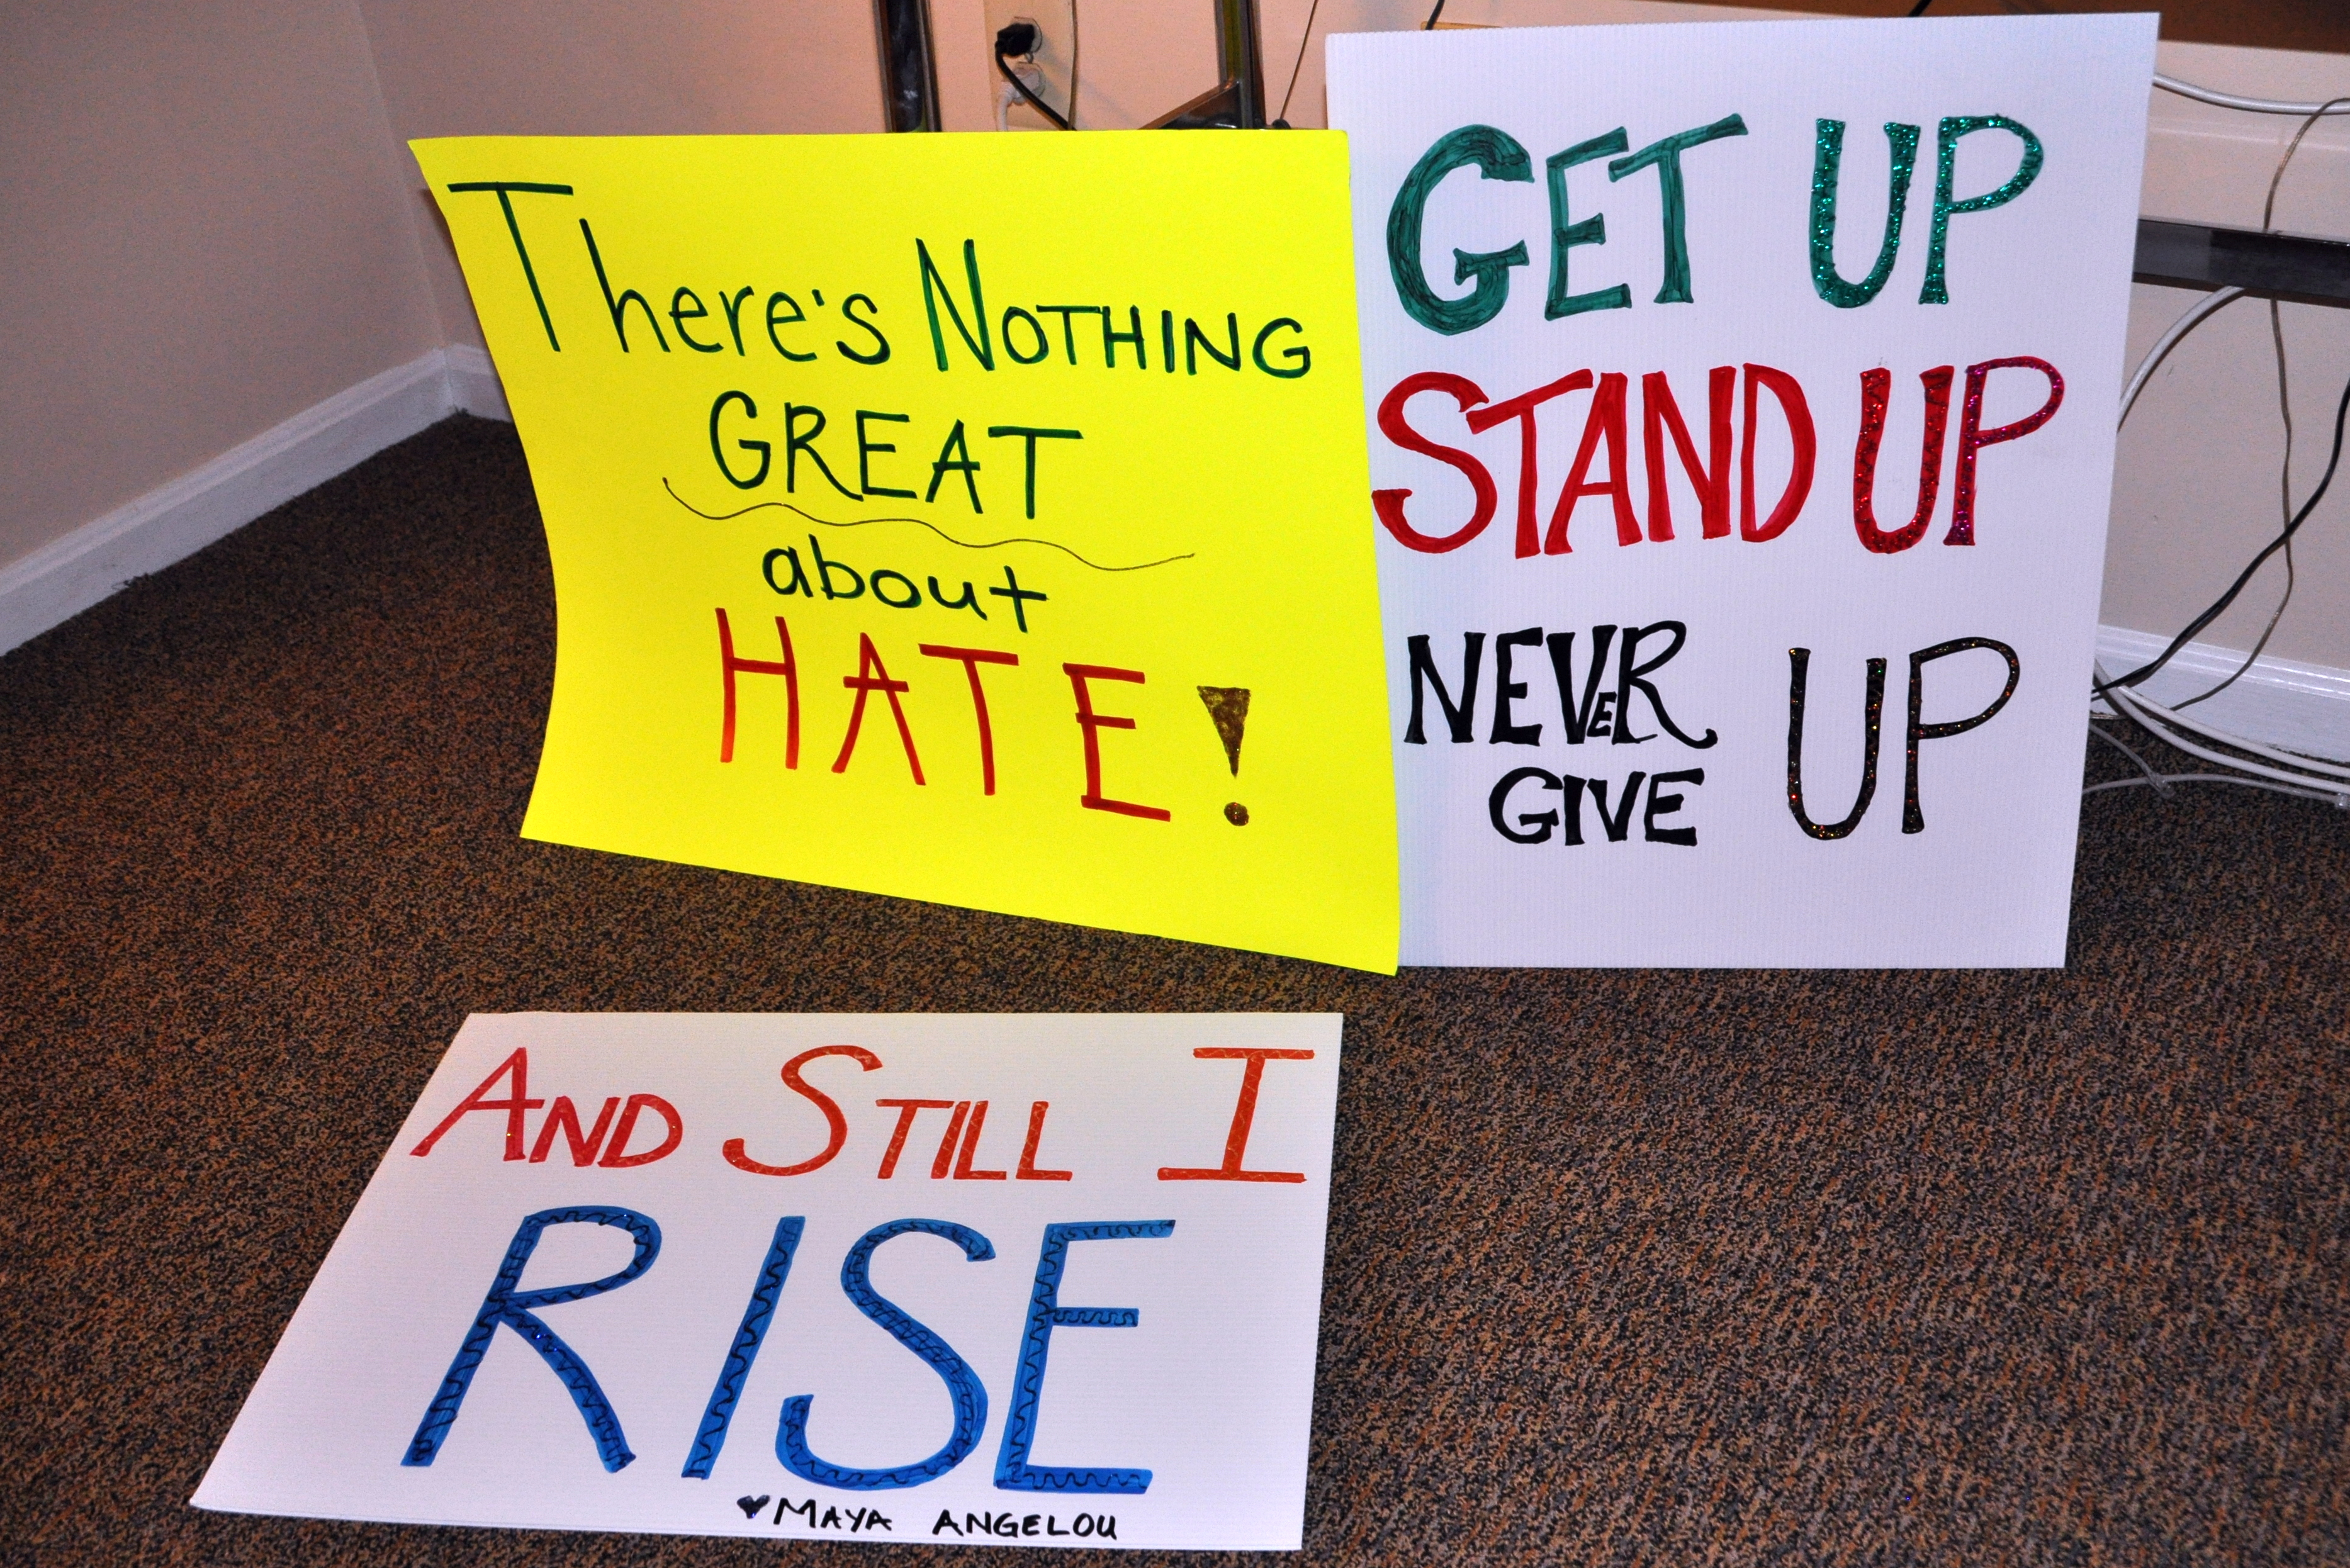 There's NOTHING
GREAT
about
HATE!
GET UP
STAND UP
NEVER
GIVE UP
AND STILL I
RISE
♥MAYA ANGELOU